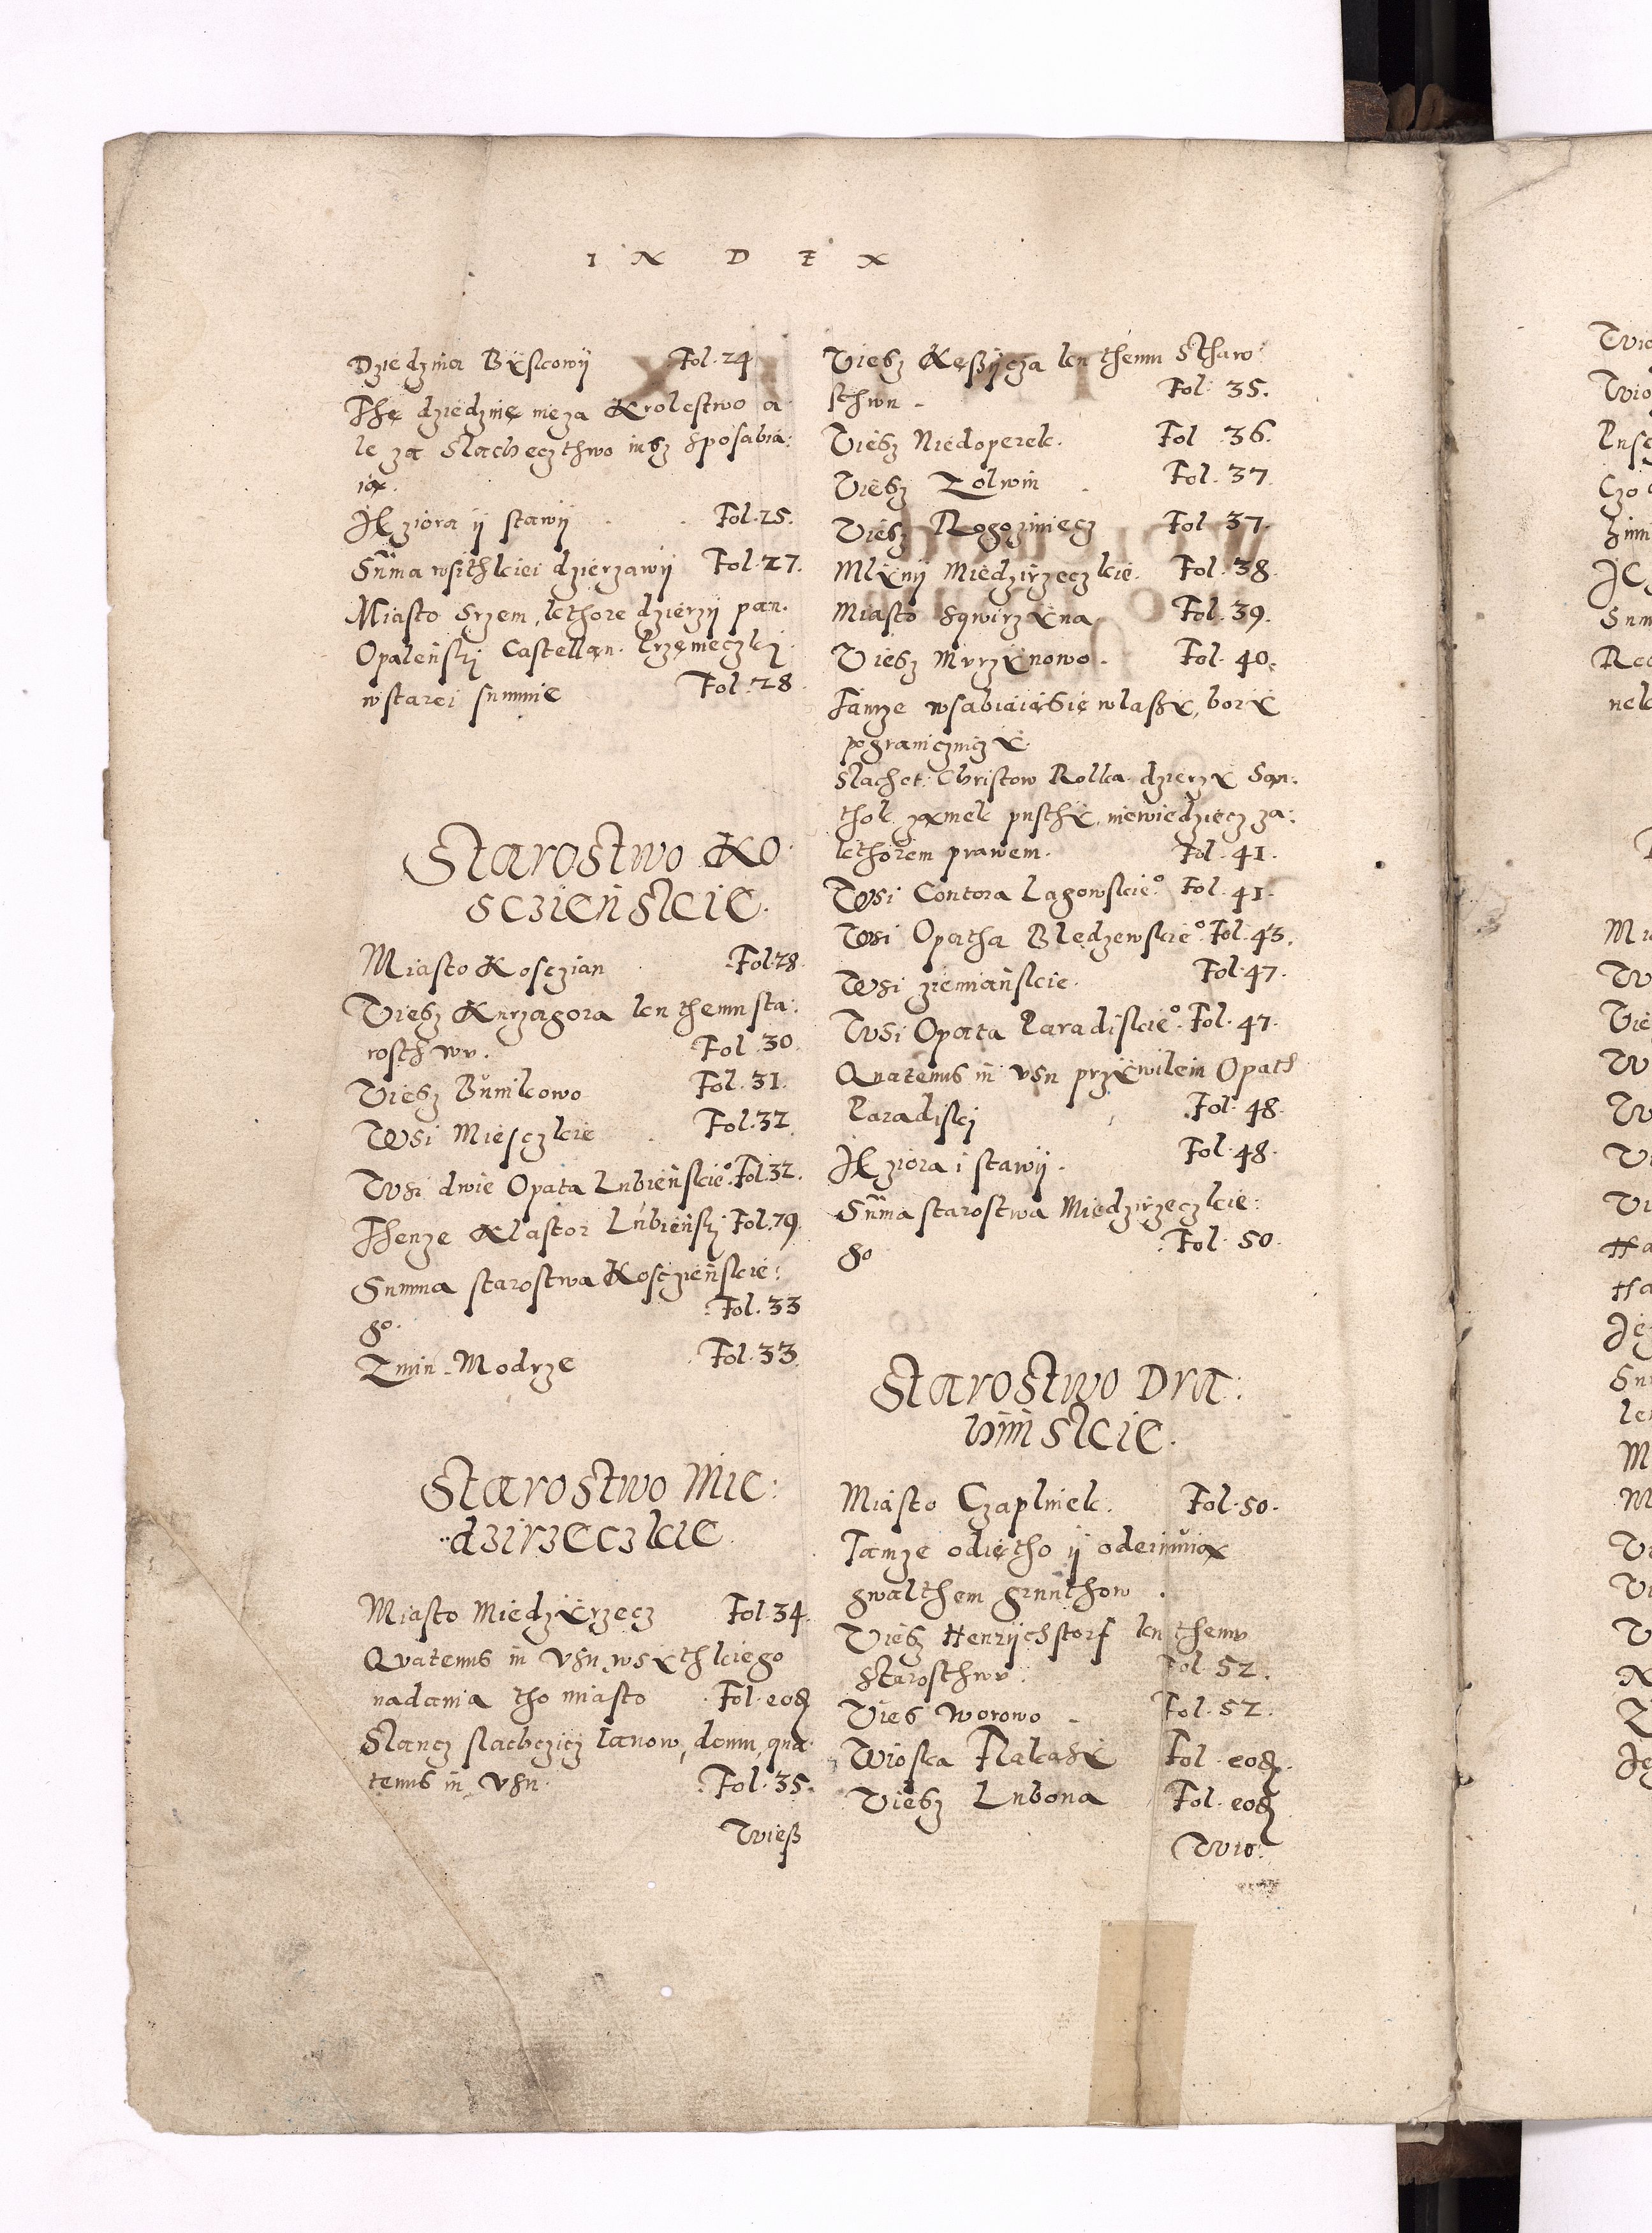 INDEX
Dziedzina Byskowÿ Fol. 24
Thę dziedzinę nieza Krolestwo a
le za Slacheczthwo iusz sposabia:
ią.
Ieziora ÿ stawÿ Fol. 25.
Sum̃a wsithkiei dzierzawÿ Fol. 27.
Miasto Srzem, kthore dzierzÿ pan.
Opaleński Castellan. Przęmeczkj
w starei summie Fol. 28
Starostwo Ko
sczieńskie.
Miasto Kosczian Fol. 28
Viesz Kurzagora ku themu sta:
rosthwu. Fol 30
Viesz Bunikowo Fol. 31.
Wsi Miesczkie Fol. 32
Wsi dwie Opata Lubieńskie°. Fol. 32.
Thenze Klastor Lubieńskj Fol. 79.
Summa starostwa Kosczieńskie:
go. Fol. 33
Zmin - Modrze Fol. 33
Starostwo Mie:
dzirzeczkie
Miasto Miedzÿrzecz Fol. 34.
Quatenus in vsu wsÿthkiego
nadania tho miasto Fol. eod
Slancz slachczicz Ianow, domu, qua
tenus in vsu. Fol. 35.
Wieß
Viesz Kęßÿcza ku themu Sthaw
sthwu - Fol. 35.
Viesz Niedoperek. Fol. 36.
Viesz Zolwin Fol. 37
Viesz Rogoziniecz Fol 37.
Mlÿnÿ Miedzirzeczkie. Fol. 38.
Miasto Sqwirzÿna Fol. 39.
Viesz Murzÿnowo. Fol. 40.
Tamze wsabiaiąsię w laßÿ, borÿ
pogranicznicżÿ.
Slachet. Christow Rolka dzierzÿ San:
thok zamek pusthÿ, niewiedziecz za:
kthorem prawem. Fol. 41.
Wsi Contora Lagowskie° Fol. 41.
Wsi Opatha Bledzewskie°. Fol. 43.
Wsi ziemiańskie. Fol. 47.
Wsi Opata Paradiskie°. Fol. 47.
Quatenus in vsu przÿwileiu Opath
Paradiskj Fol. 48.
Ieziora i stawÿ. Fol. 48.
Sum̃a starostwa Miedzirzeczkie:
go Fol. 50.
Starostwo Dra:
himskie.
Miasto Czaplinek. Fol. 50.
Tamze odiętho ÿ odeimuią
gwalthem grunthow.
Viesz Henrÿchstorf ku themu
starosthwu. Fol. 52.
Vies Worowo - Fol. 52.
Wioska Flakasÿ Fol. eod.
Viesz Lubona Fol. eod
Wio: